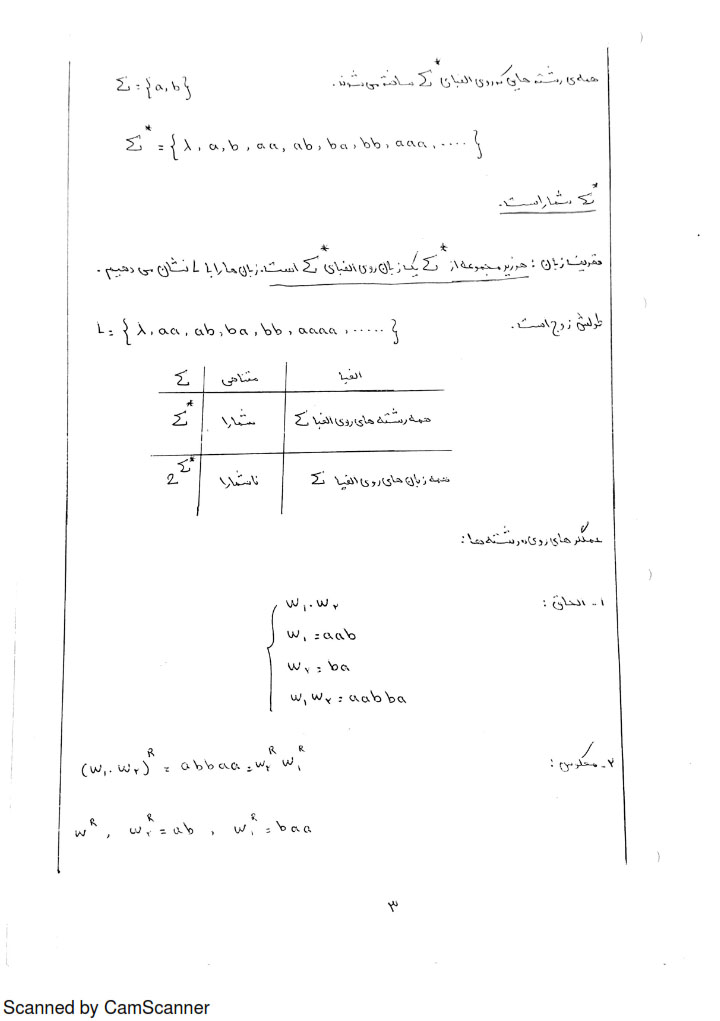 همه‌ی رشته هایی که روی الفبای Σ* ساخته می شوند. Σ={a,b}
Σ* = {λ, a, b, aa, ab, ba, bb, aaa, ....}
Σ* شمارا است.
تعریف زبان : هر زیر مجموعه از Σ* یک زبان روی الفبای Σ* است. زبان ها را با L نشان می دهیم.
طولش زوج است. L= {λ, aa, ab, ba, bb, aaaa, .....}
الفبا متناهی Σ
همه رشته های روی الفبا Σ شمارا Σ*
همه زبان های روی الفبا Σ ناشمارا 2^Σ*
عملگر های روی رشته ها:
۱- الحاق : w۱.w۲
w۱ = aab
w۲ = ba
w۱w۲ = aabba
۲- معکوس : (w۱.w۲)^R = abbaa = w۲^R w۱^R
w^R , w۲^R = ab , w۱^R = baa
۳
Scanned by CamScanner